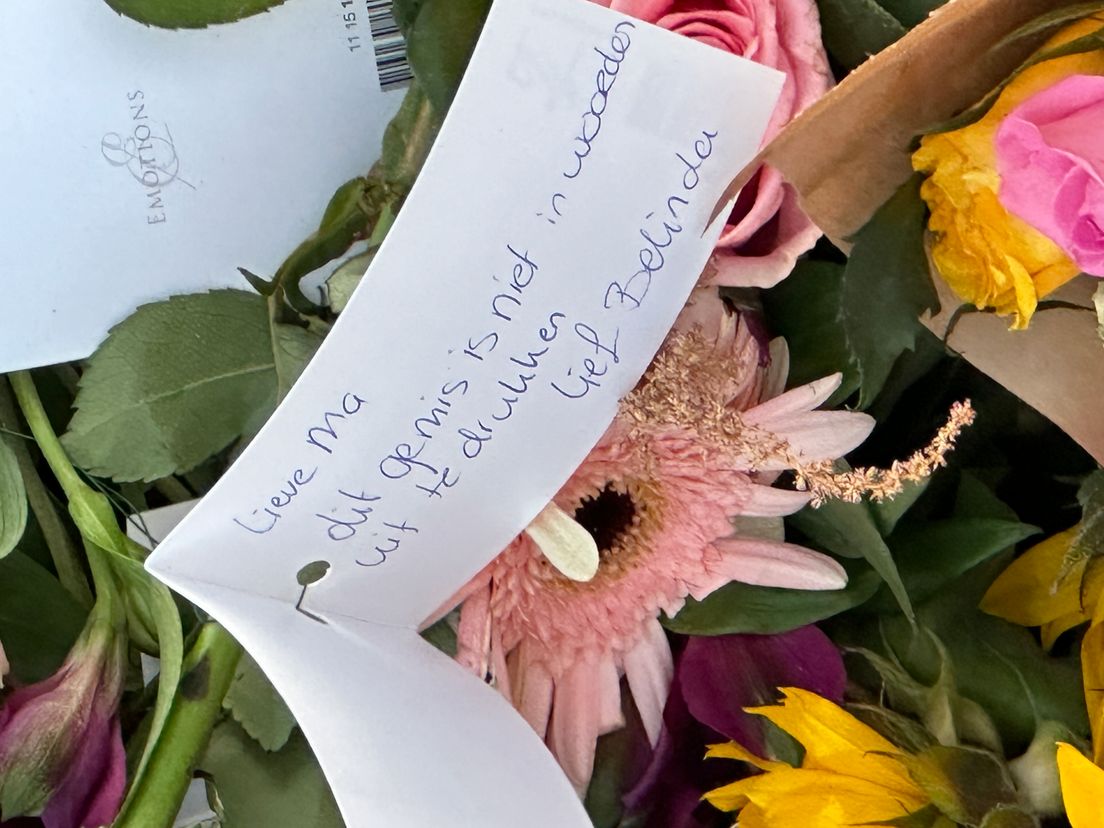 Lieve Ma
dit gemis is niet in woorden
uit te drukken
lief Belinda
EMOTIONS
11151